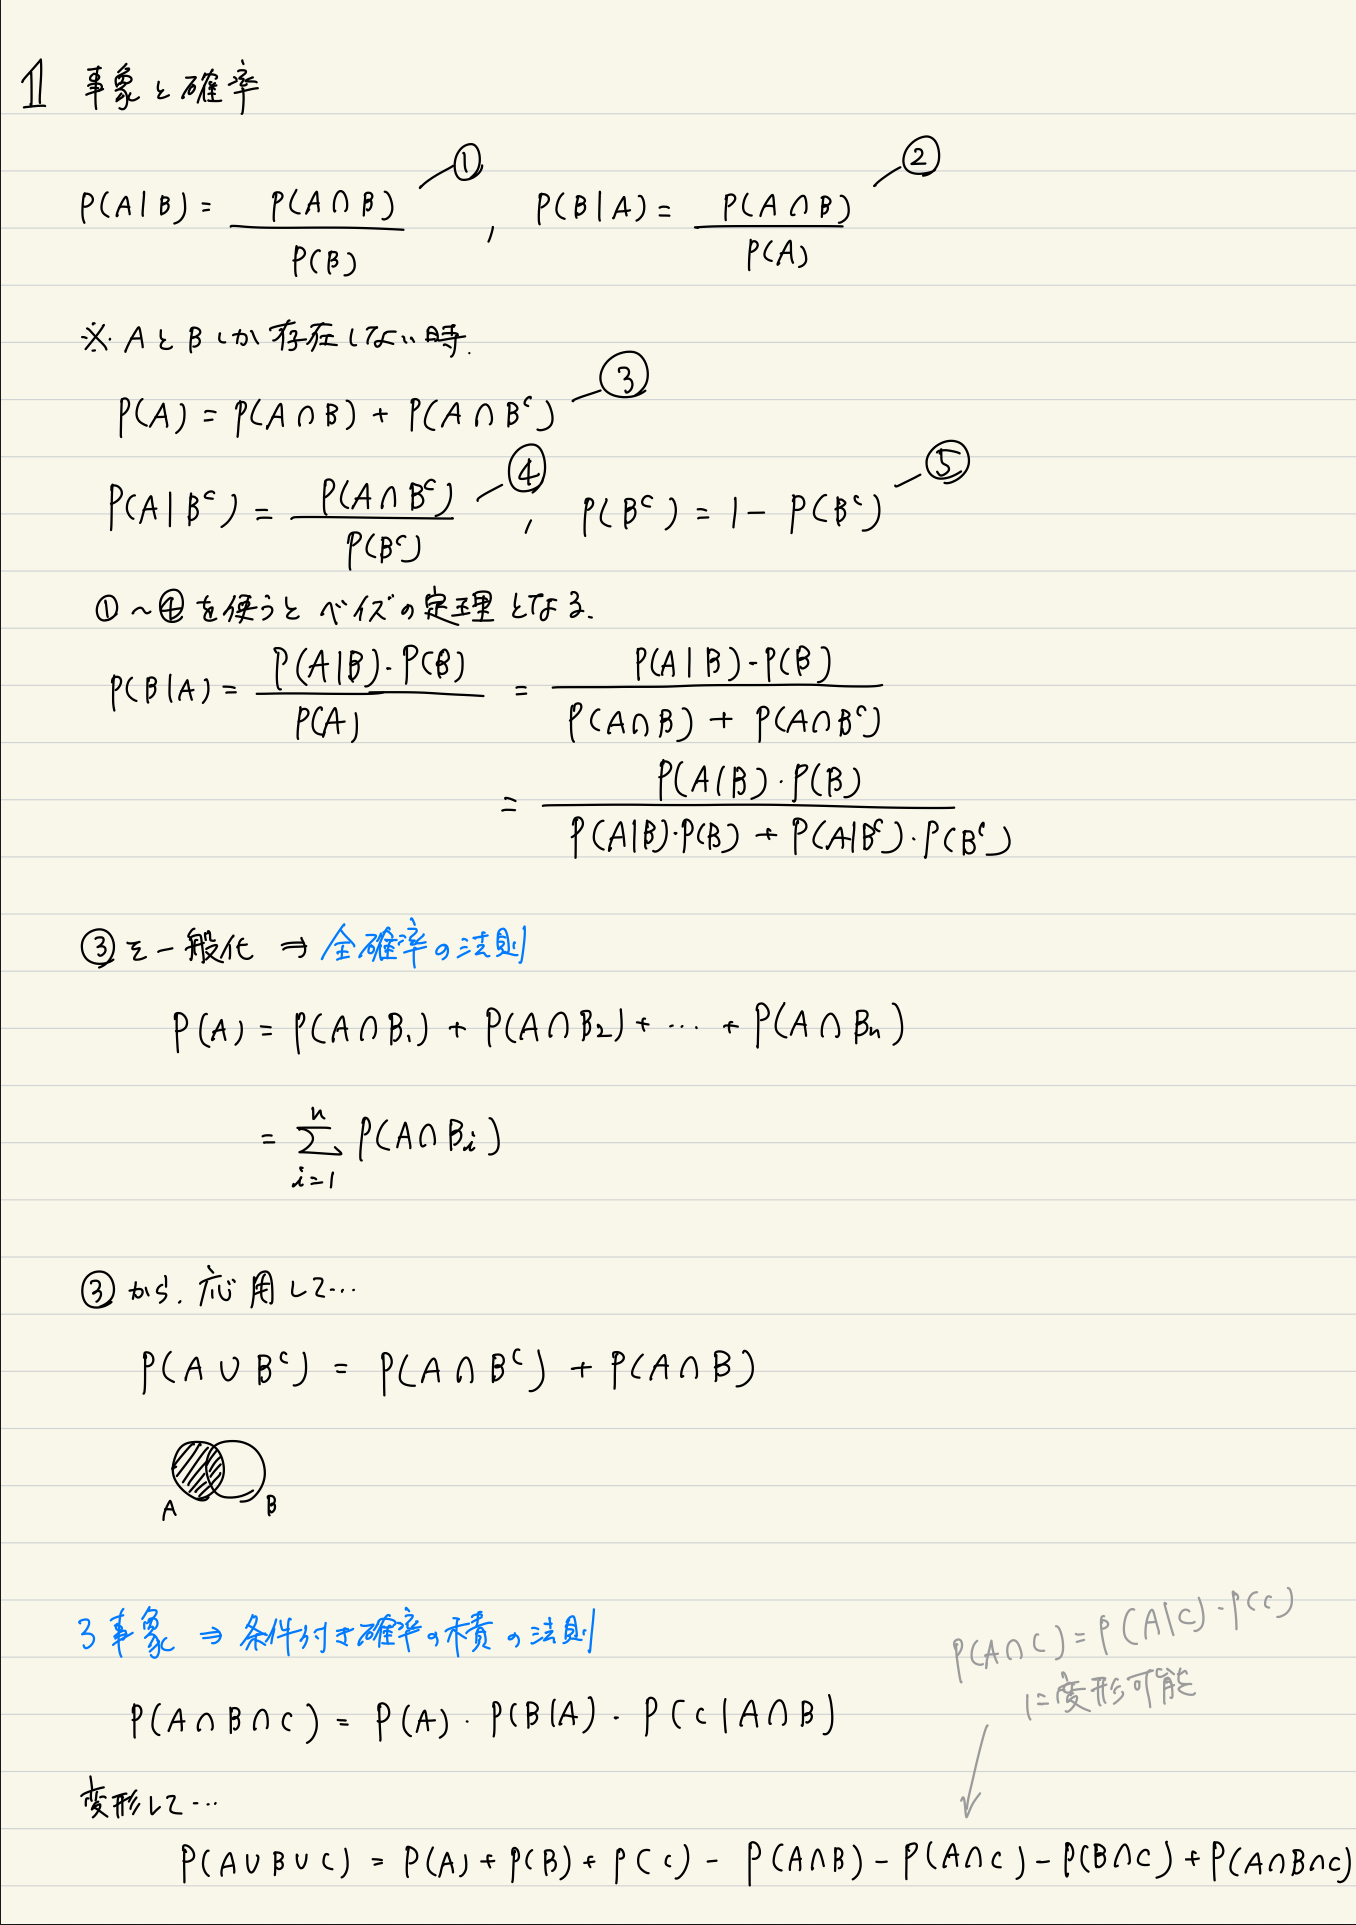 1 事象と確率
P(A|B) = P(A∩B) / P(B) ―①, P(B|A) = P(A∩B) / P(A) ―②
※ AとBしか存在してない時.
P(A) = P(A∩B) + P(A∩Bᶜ) ―③
P(A|Bᶜ) = P(A∩Bᶜ) / P(Bᶜ) ―④, P(Bᶜ) = 1 - P(Bᶜ) ―⑤
①~④を使うとベイズの定理となる.
P(B|A) = P(A|B)・P(B) / P(A) = P(A|B)・P(B) / P(A∩B) + P(A∩Bᶜ)
= P(A|B)・P(B) / P(A|B)・P(B) + P(A|Bᶜ)・P(Bᶜ)
③を一般化 ⇒ 全確率の法則
P(A) = P(A∩B₁) + P(A∩B₂) + … + P(A∩Bₙ)
= Σ_{i=1}^{n} P(A∩Bᵢ)
③から.応用して…
P(A∪Bᶜ) = P(A∩Bᶜ) + P(A∩B)
A B
3事象 ⇒ 条件付き確率の積の法則
P(A∩C) = P(A|C)・P(C)
に変形可能
P(A∩B∩C) = P(A)・P(B|A)・P(C|A∩B)
変形して…
P(A∪B∪C) = P(A) + P(B) + P(C) - P(A∩B) - P(A∩C) - P(B∩C) + P(A∩B∩C)